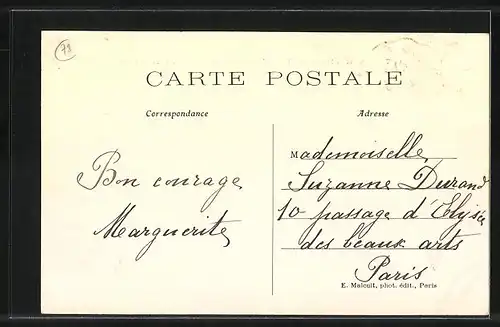 78
CARTE POSTALE
Correspondance
Adresse
Bon courage
Marguerite
Mademoiselle
Suzanne Durand
10 passage d'Elysée
des beaux arts
Paris
E. Malcuit, phot. édit., Paris